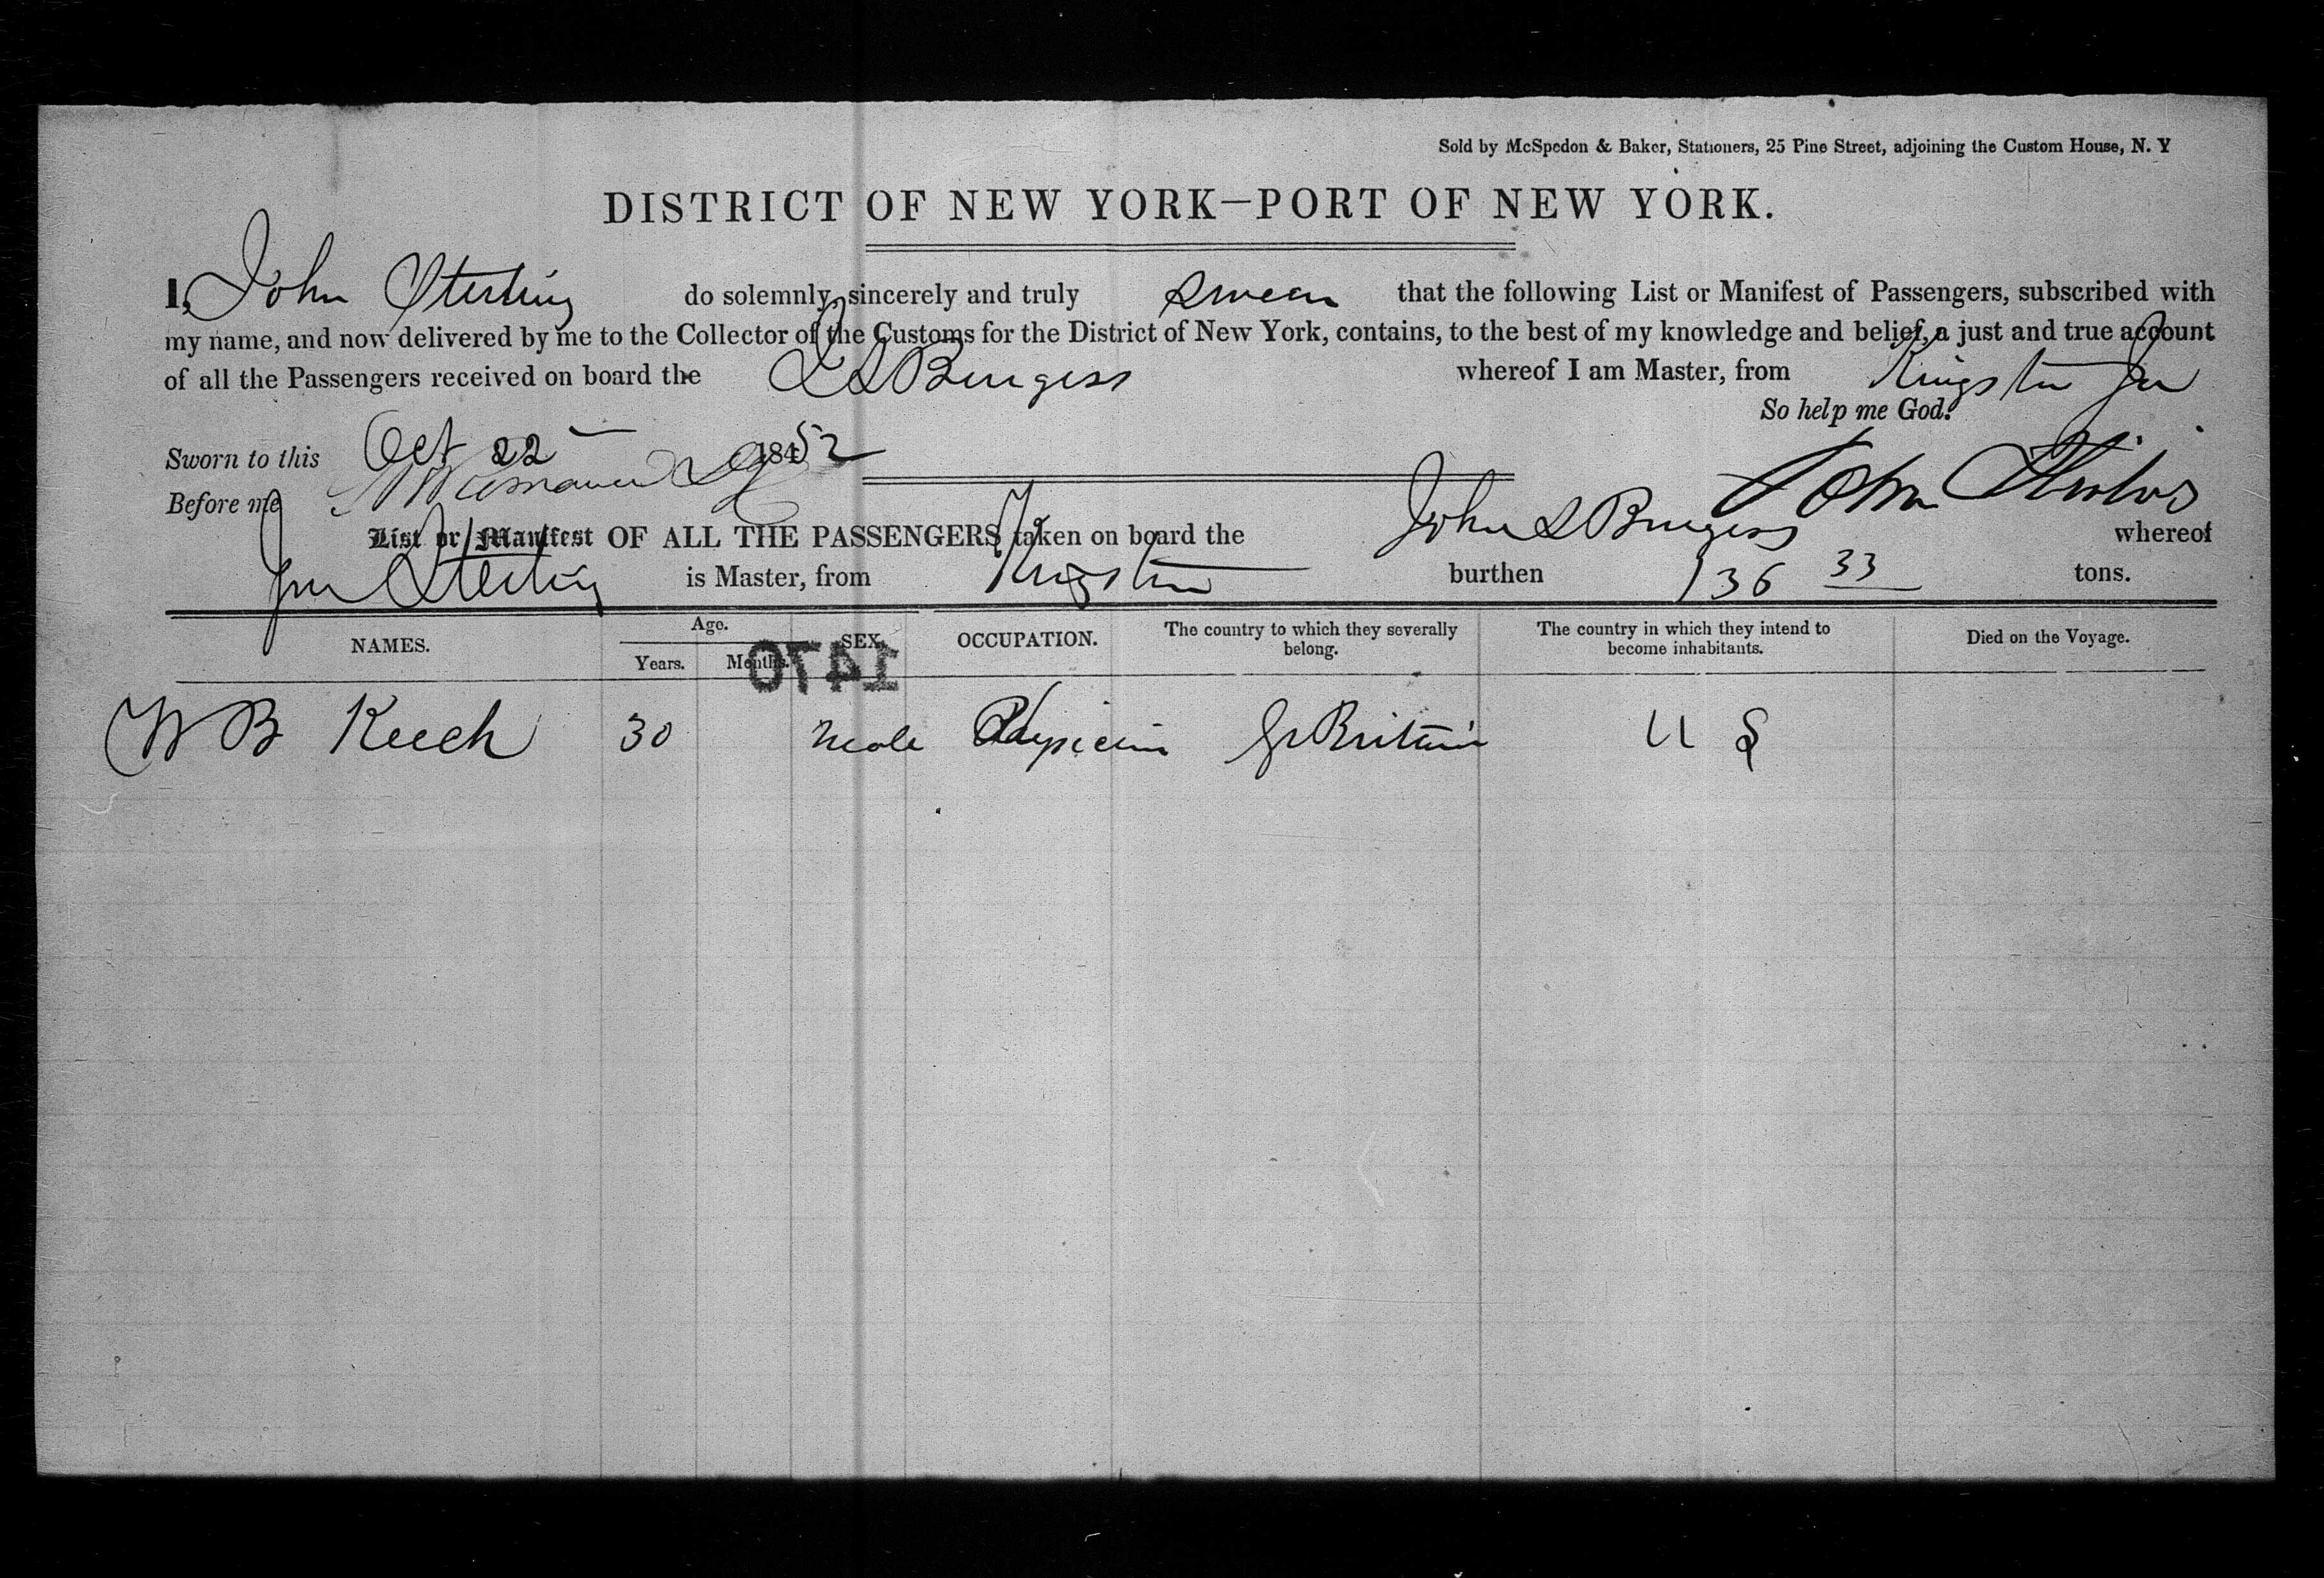 Sold by McSpedon & Baker, Stationers, 25 Pine Street, adjoining the Custom House, N. Y
DISTRICT OF NEW YORK—PORT OF NEW YORK.
I, John Sterling do solemnly, sincerely and truly swear that the following List or Manifest of Passengers, subscribed with
my name, and now delivered by me to the Collector of the Customs for the District of New York, contains, to the best of my knowledge and belief, a just and true account
of all the Passengers received on board the J S Burgess whereof I am Master, from Kingston Ja
So help me God.
Sworn to this Oct 22 1852
Before me John
List or Manifest OF ALL THE PASSENGERS taken on board the John S Burgess whereof
Jno Sterling is Master, from Kingston burthen 136 33 tons.
NAMES. Age. Years. Months. SEX. OCCUPATION. The country to which they severally belong. The country in which they intend to become inhabitants. Died on the Voyage.
1470
W B Keech 30 Male Physician Gr Britain U S